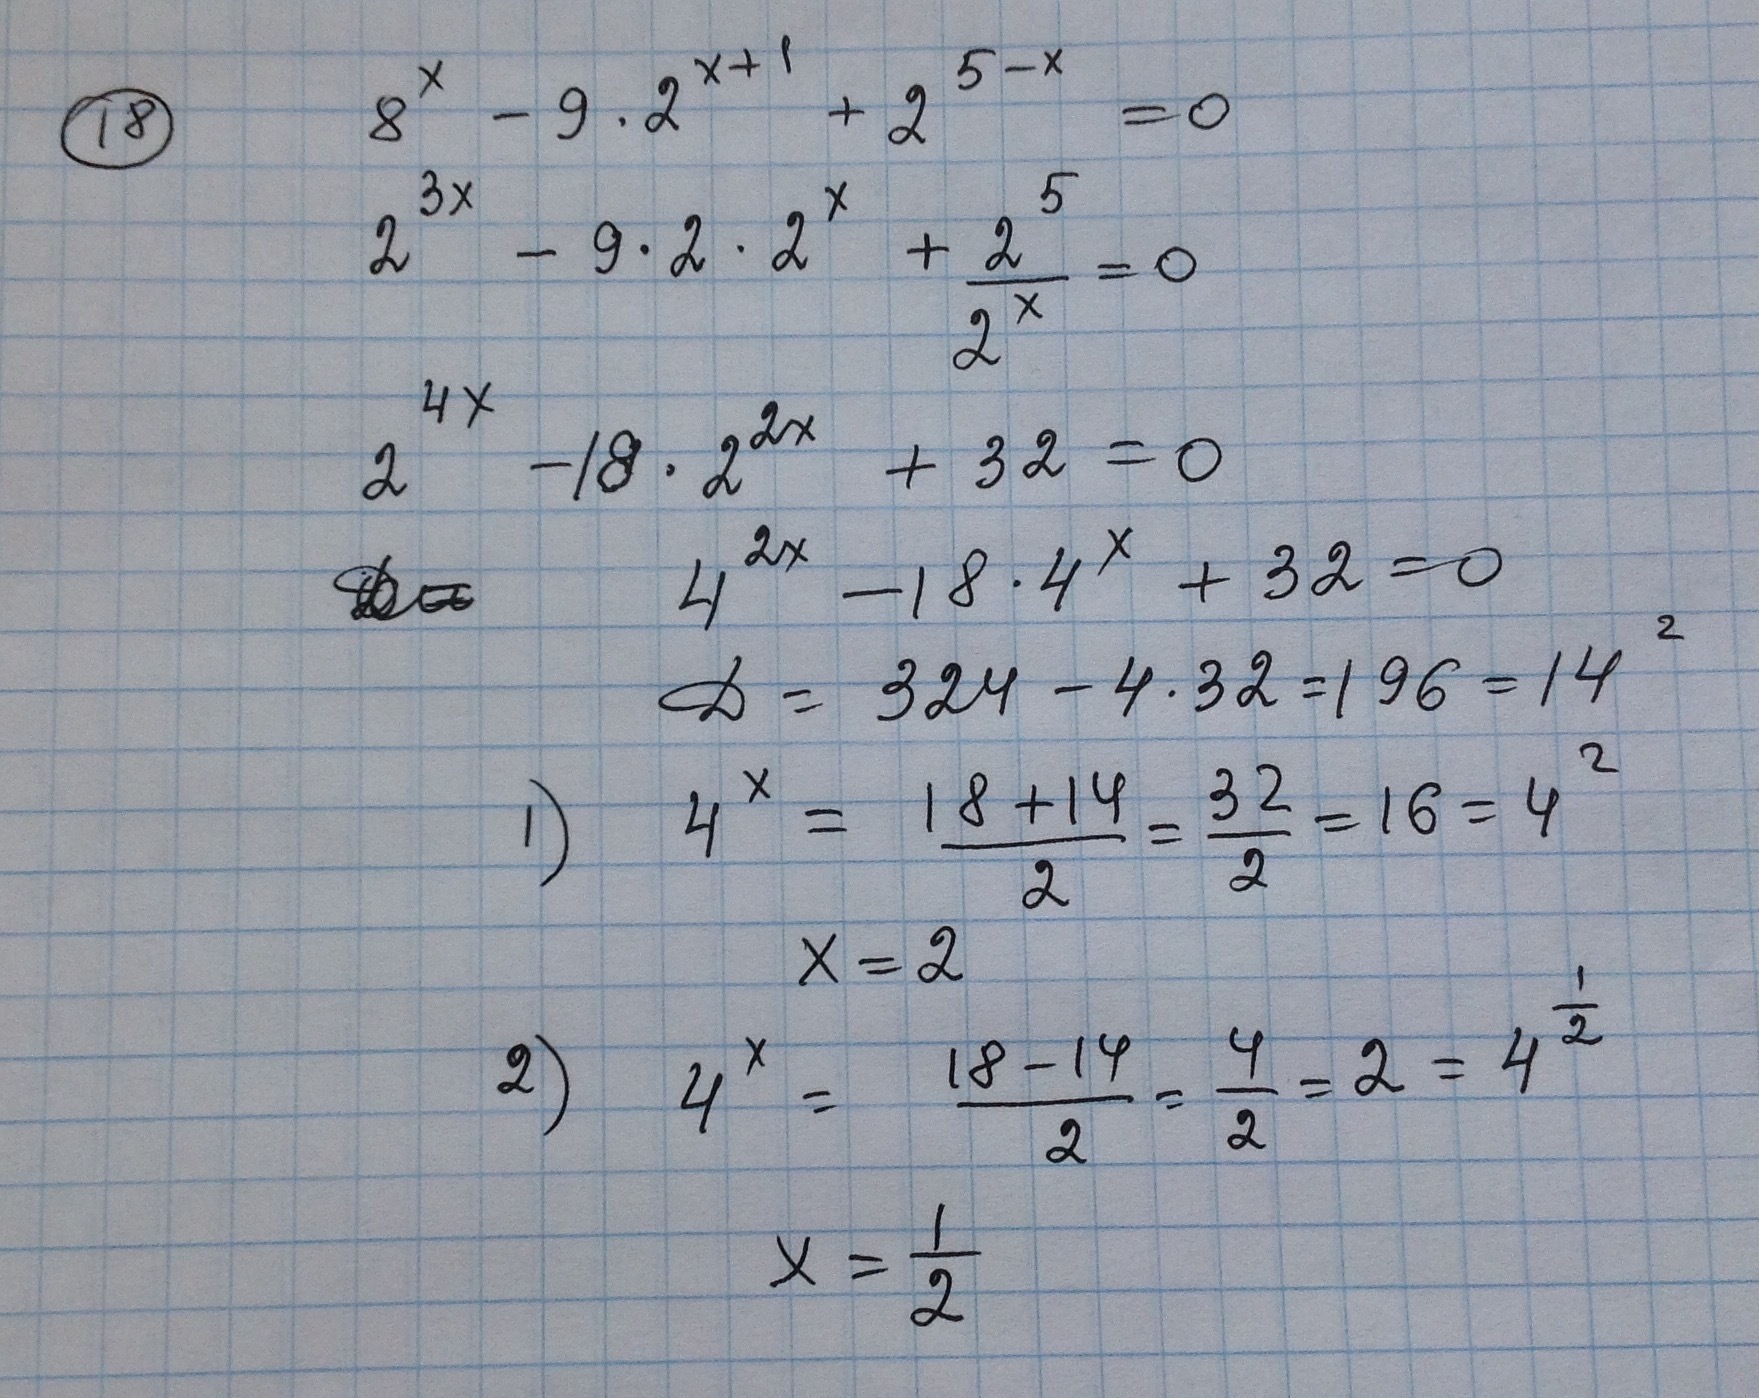 (18) 8^x - 9 · 2^(x+1) + 2^(5-x) = 0
2^(3x) - 9 · 2 · 2^x + 2^5/2^x = 0
2^(4x) - 18 · 2^(2x) + 32 = 0
4^(2x) - 18 · 4^x + 32 = 0
D = 324 - 4 · 32 = 196 = 14^2
1) 4^x = (18+14)/2 = 32/2 = 16 = 4^2
x = 2
2) 4^x = (18-14)/2 = 4/2 = 2 = 4^(1/2)
x = 1/2